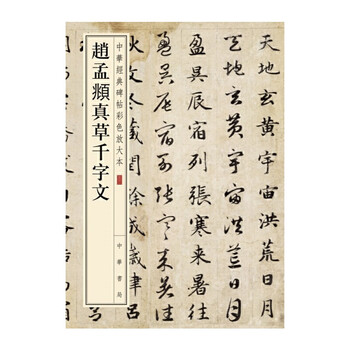 天地玄黃宇宙洪荒日月
天地玄黃宇宙洪荒日月
盈昃辰宿列張寒來暑往
盈昃辰宿列張寒來暑往
秋收冬藏閏餘成歲律呂
中華經典碑帖彩色放大本
趙孟頫真草千字文
中華書局